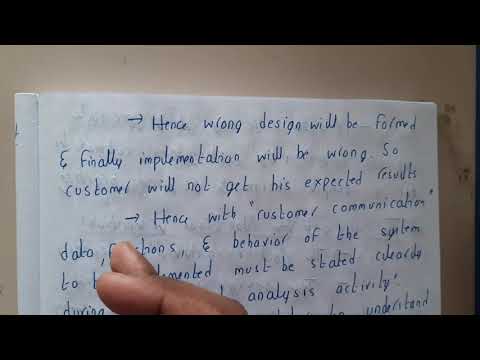 → Hence wrong design will be formed
& finally implementation will be wrong. So
customer will not get his expected results
→ Hence with "customer communication"
data, & behavior of the system
to must be stated clearly
during analysis activity".
understand